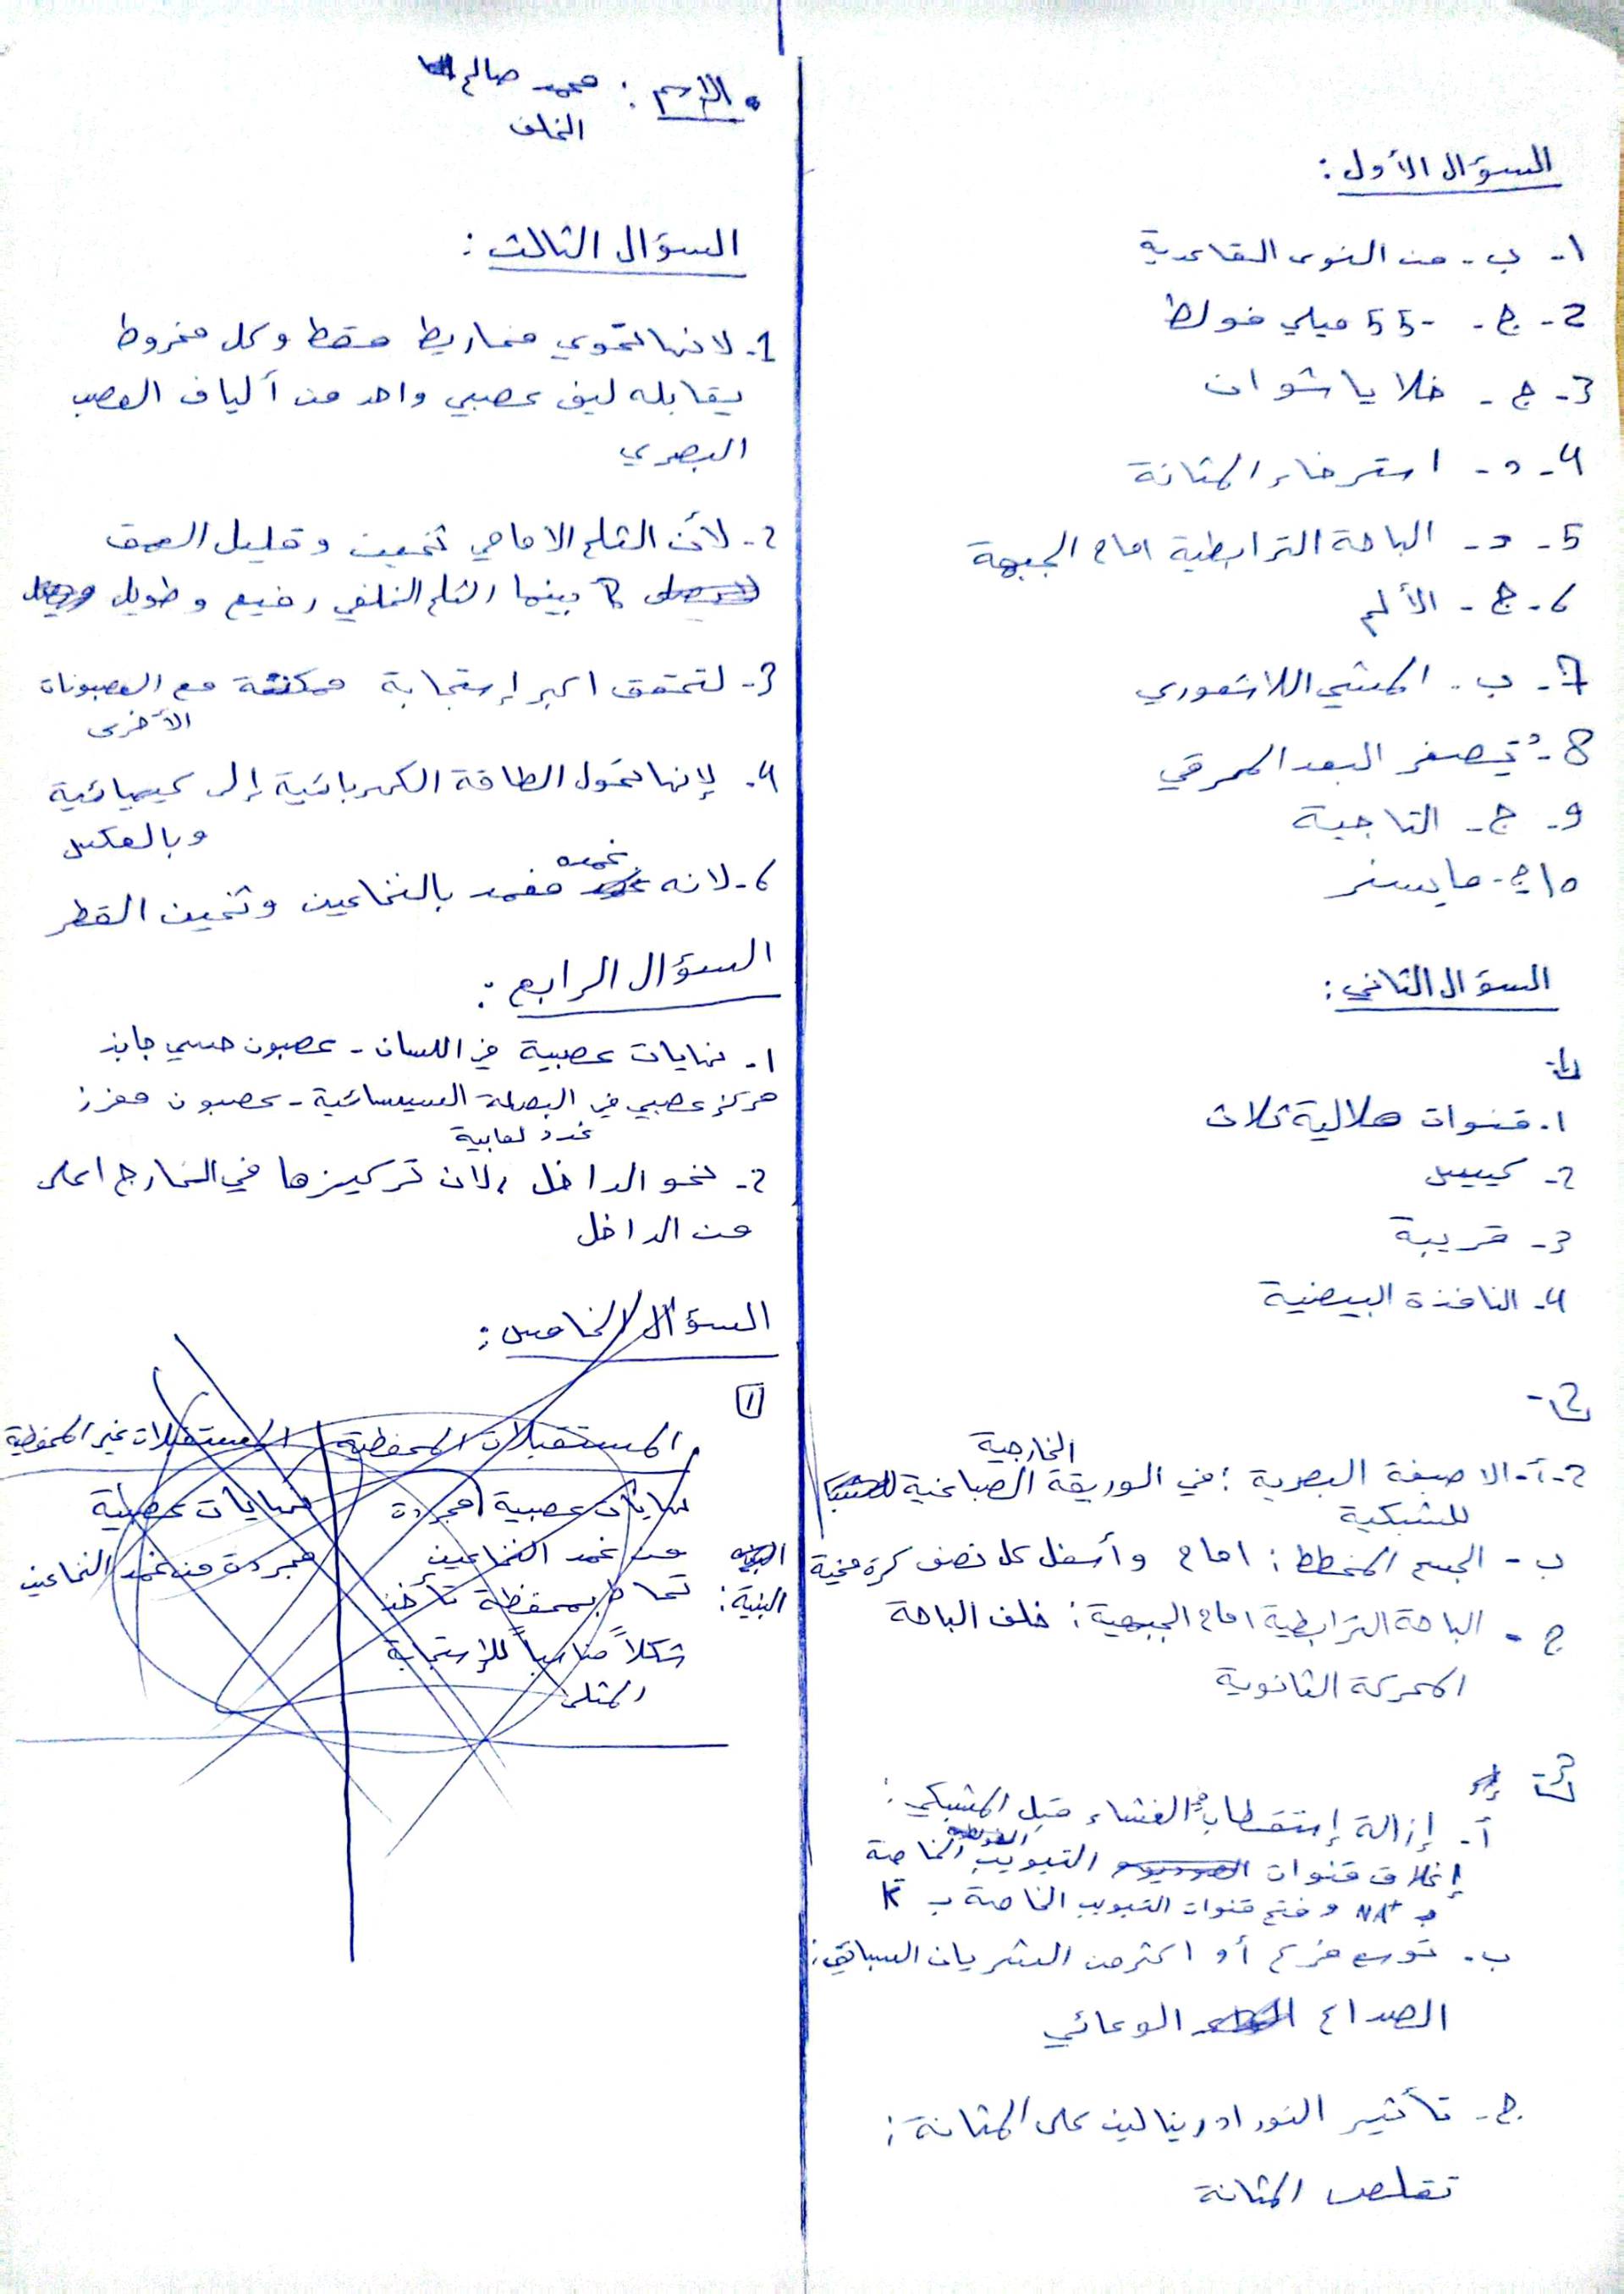 السؤال الأول :
١- ب - من النوى القاعدية
2- ج - -55 ميلي فولط
3- ج - خلايا شوان
4- د - استرخاء المثانة
5- د - الباحة الترابطية امام الجبهة
6- ج - الألم
7- ب - المشي اللاشعوري
8- د يصغر البعد المحرقي
9- ج - التاجية
10 ج - مايسنر
السؤال الثاني :
1-
1- قنوات هلالية ثلاث
2- كييس
3- قريبة
4- النافذة البيضية
2-
2- أ- الاصبغة البصرية : في الوريقة الصباغية الخارجية
للشبكية
ب - الجسم المخطط : امام وأسفل كل نصف كرة مخية
ج - الباحة الترابطية امام الجبهية : خلف الباحة
المحركة الثانوية
3-
أ- إزالة إستقطاب في الغشاء قبل المشبكي :
إغلاق قنوات التبويب الفولطية الخاصة
ب NA+ و فتح قنوات التبويب الخاصة ب K+
ب- توسع فرع أو اكثر من الشريان السباتي :
الصداع الوعائي
ج - تأثير النورادرينالين على المثانة :
تقلص المثانة
• الإسم : محمد صالح
الخلف
السؤال الثالث :
1- لانها تحوي مخاريط فقط وكل مخروط
يقابله ليف عصبي واحد من ألياف العصب
البصري
2- لأن الثلم الامامي ثخين و قليل العمق
بينما الثلم الخلفي رفيع و طويل
3- لتحقق اكبر إستجابة ممكنة مع العصبونات
الأخرى
4- لإنها تحول الطاقة الكهربائية إلى كيميائية
وبالعكس
6- لانه غمده مغمد بالنخاعين وثخين القطر
السؤال الرابع :
1- نهايات عصبية في اللسان - عصبون حسي جابذ
مركز عصبي في البصلة السيسائية - عصبون مفرز
غدد لعابية
2- نحو الداخل ، لان تركيزها في الخارج اعلى
من الداخل
السؤال الخامس :
1
المستقبلات المحفظية المستقبلات غير المحفظية
نهايات عصبية مجردة نهايات عصبية
من غمد النخاعين مجردة من غمد النخاعين
البنية : تحاط بمحفظة تأخذ
شكلاً مناسباً للإستجابة
المثلى